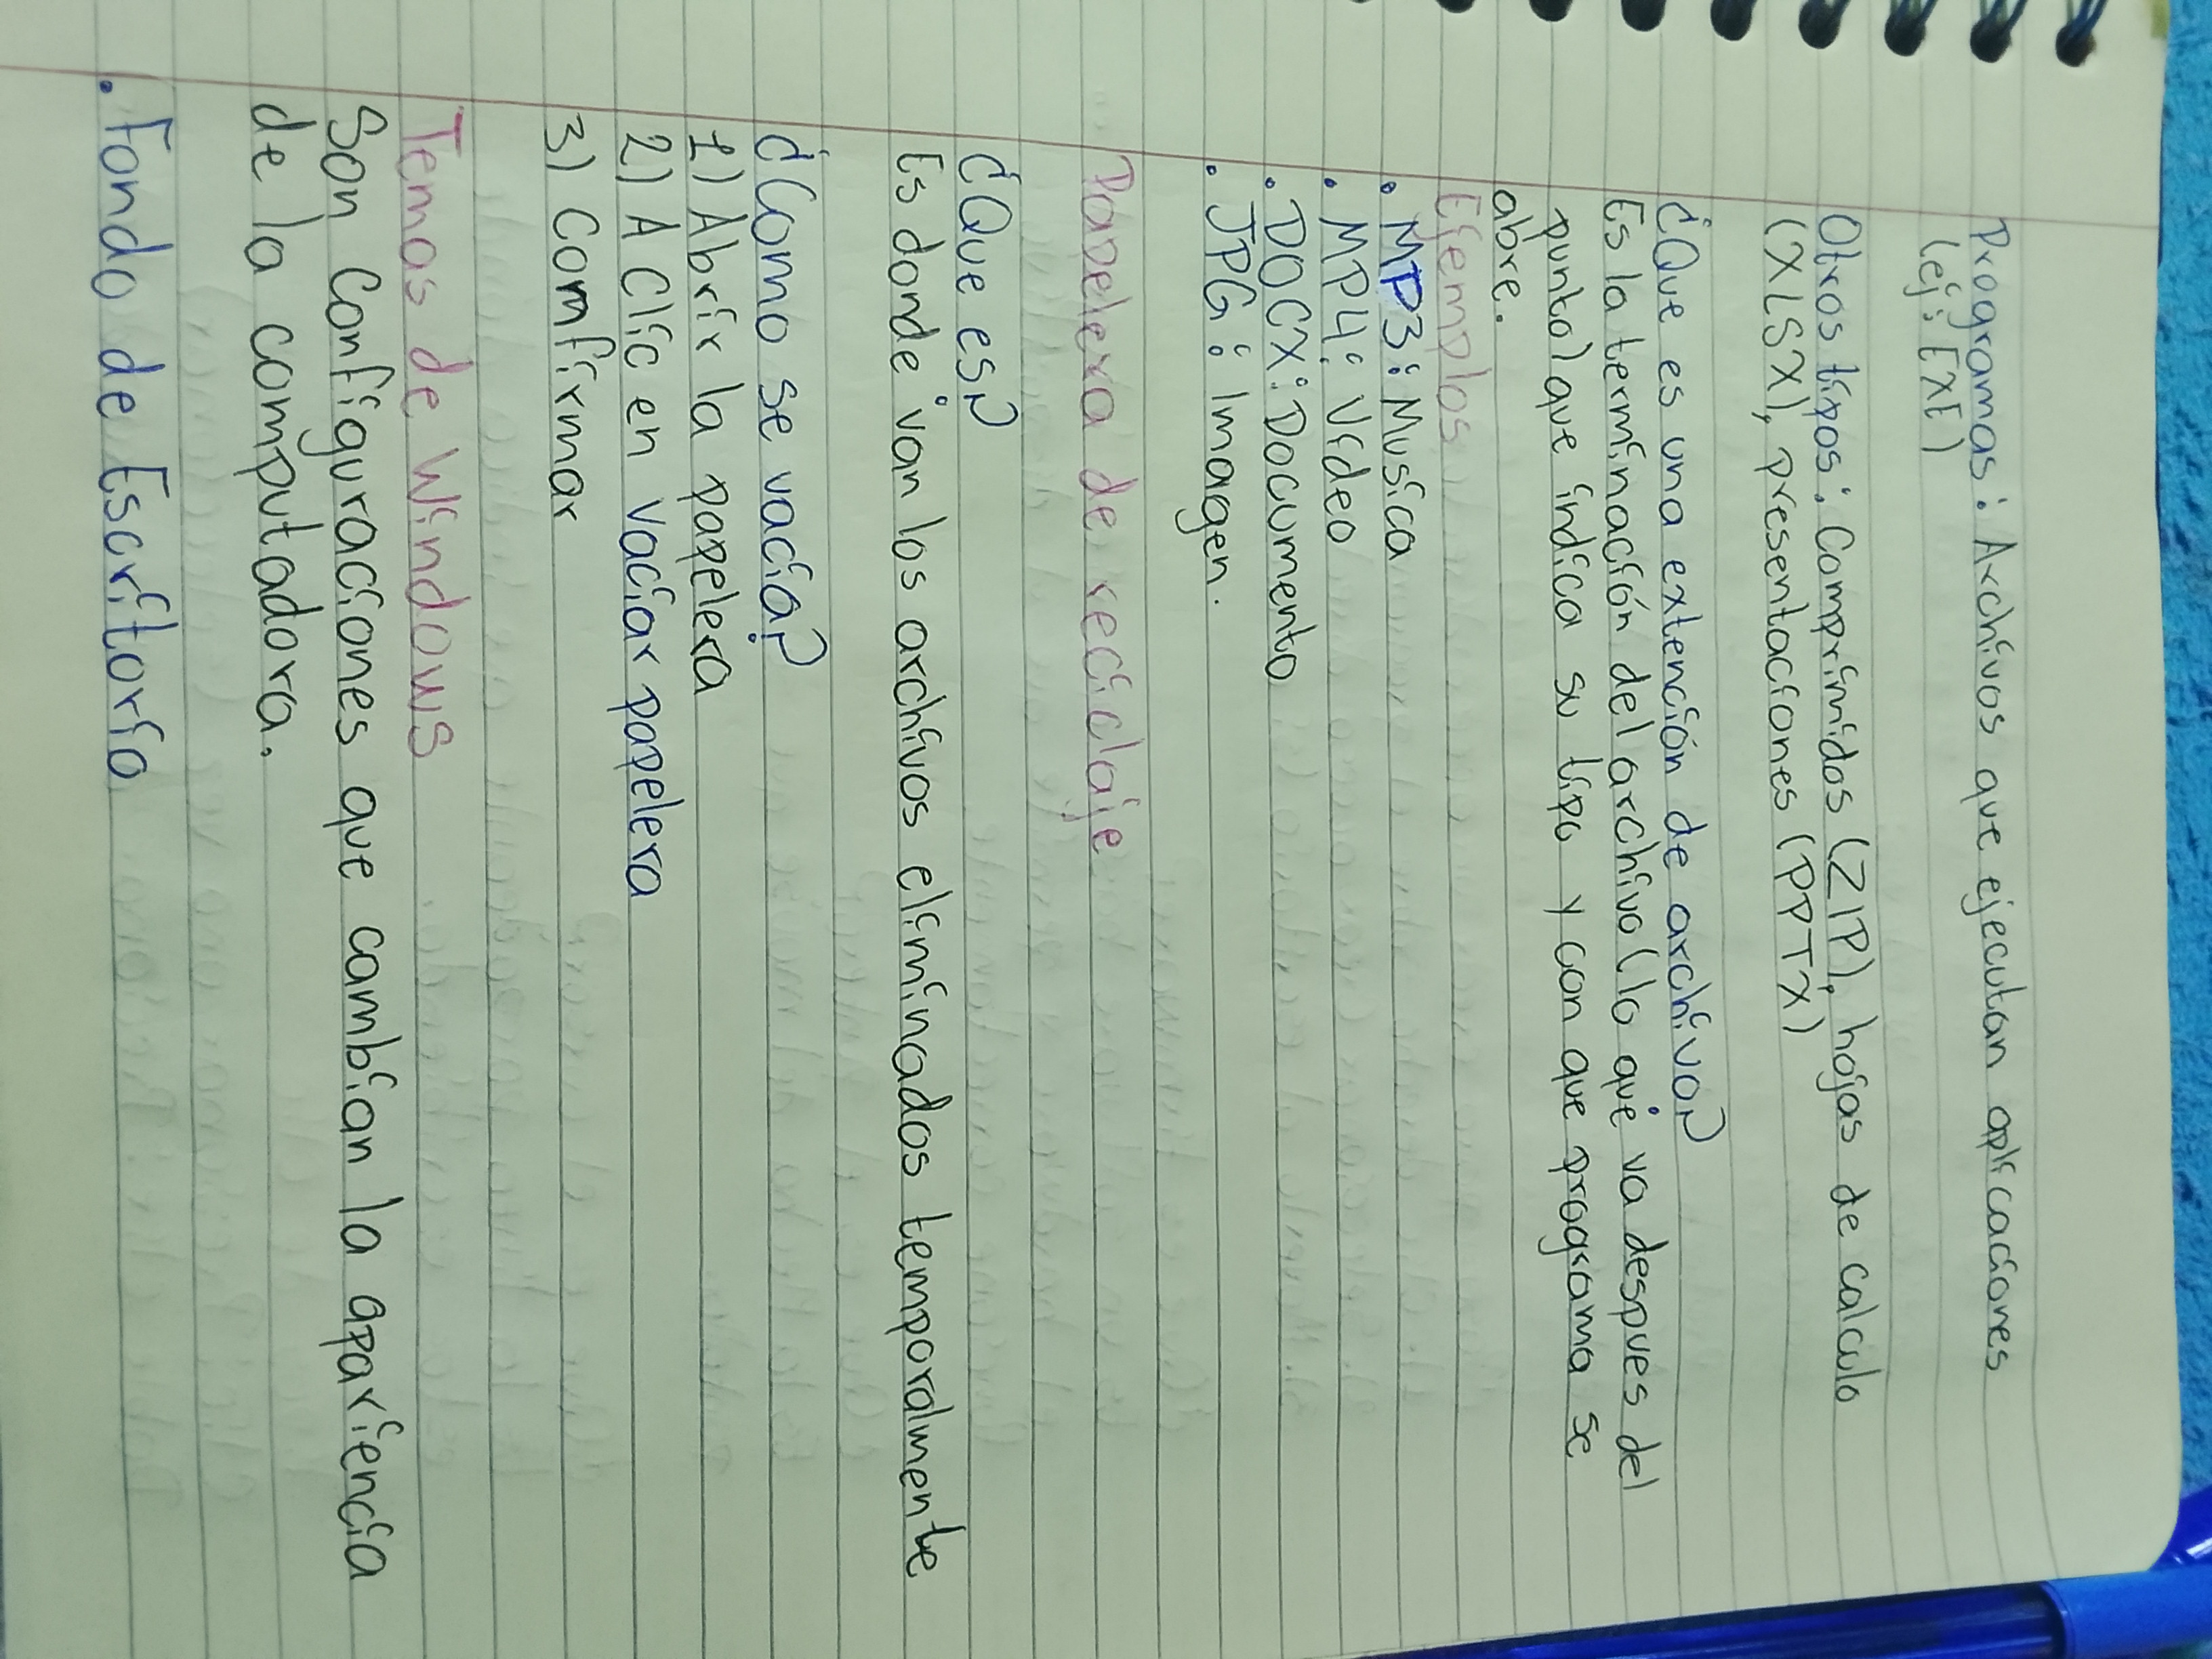 Programas: Archivos que ejecutan aplicaciones
(ej: EXE)
Otros tipos: Comprimidos (ZIP), hojas de calculo
(XLSX), presentaciones (PPTX)
¿Que es una extención de archivo?
Es la terminación del archivo (lo que va despues del
punto) que indica su tipo y con que programa se
abre.
Ejemplos
• MP3: Musica
• MP4: Video
• DOCX: Documento
• JPG: Imagen.
Papelera de reciclaje
¿Que es?
Es donde van los archivos eliminados temporalmente
¿Como se vacia?
1) Abrir la papelera
2) A Clic en vaciar papelera
3) Comfirmar
Temas de Windows
Son Configuraciones que cambian la apariencia
de la computadora.
• Fondo de Escritorio